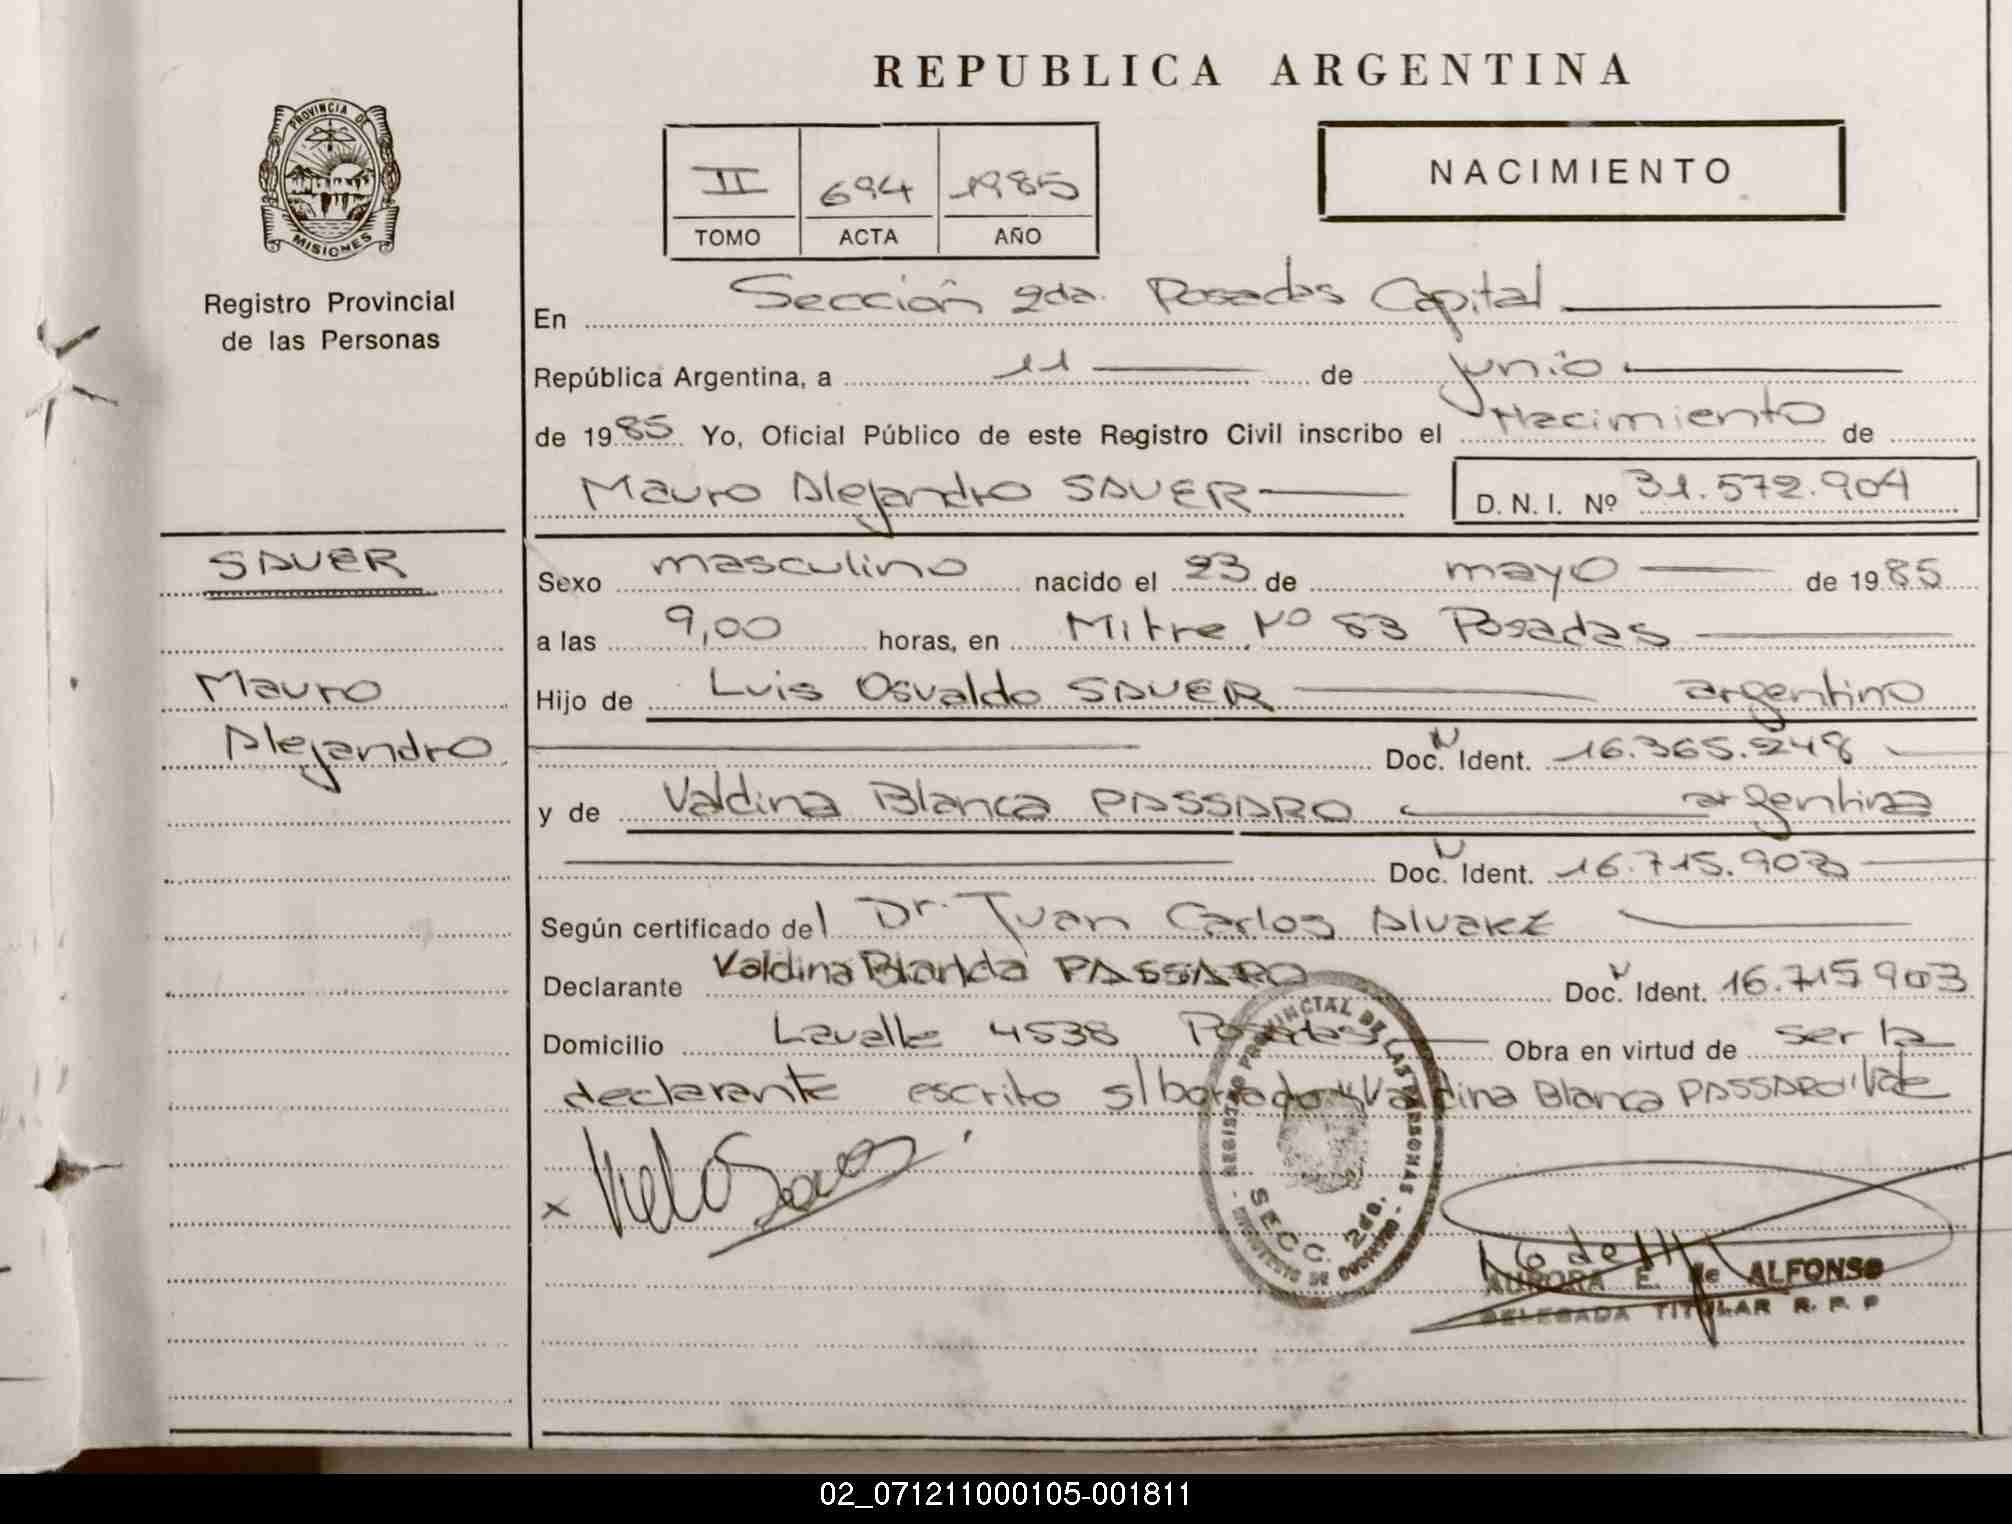 PROVINCIA DE
MISIONES
Registro Provincial
de las Personas
SAUER
Mauro
Alejandro
REPUBLICA ARGENTINA
II 694 1985
TOMO ACTA AÑO
NACIMIENTO
En Sección 2da. Posadas Capital
República Argentina, a 11 de junio
de 1985 Yo, Oficial Público de este Registro Civil inscribo el Nacimiento de
Mauro Alejandro SAUER D. N. I. Nº 31.572.904
Sexo masculino nacido el 23 de mayo de 1985
a las 9,00 horas, en Mitre Nº 83 Posadas
Hijo de Luis Osvaldo SAUER argentino
Doc. N Ident. 16.365.248
y de Valdina Blanca PASSARO argentina
Doc. N Ident. 16.715.903
Según certificado del Dr. Juan Carlos Alvarez
Declarante Valdina Blanca PASSARO Doc. N Ident. 16.715.903
Domicilio Lavalle 4538 Posadas Obra en virtud de ser la
declarante escrito s/borrado "Valdina Blanca PASSARO" Vale
x
REGISTRO PROVINCIAL DE LAS PERSONAS
SECC. 2da.
AURORA E. de ALFONSO
DELEGADA TITULAR R. P. P
02_071211000105-001811